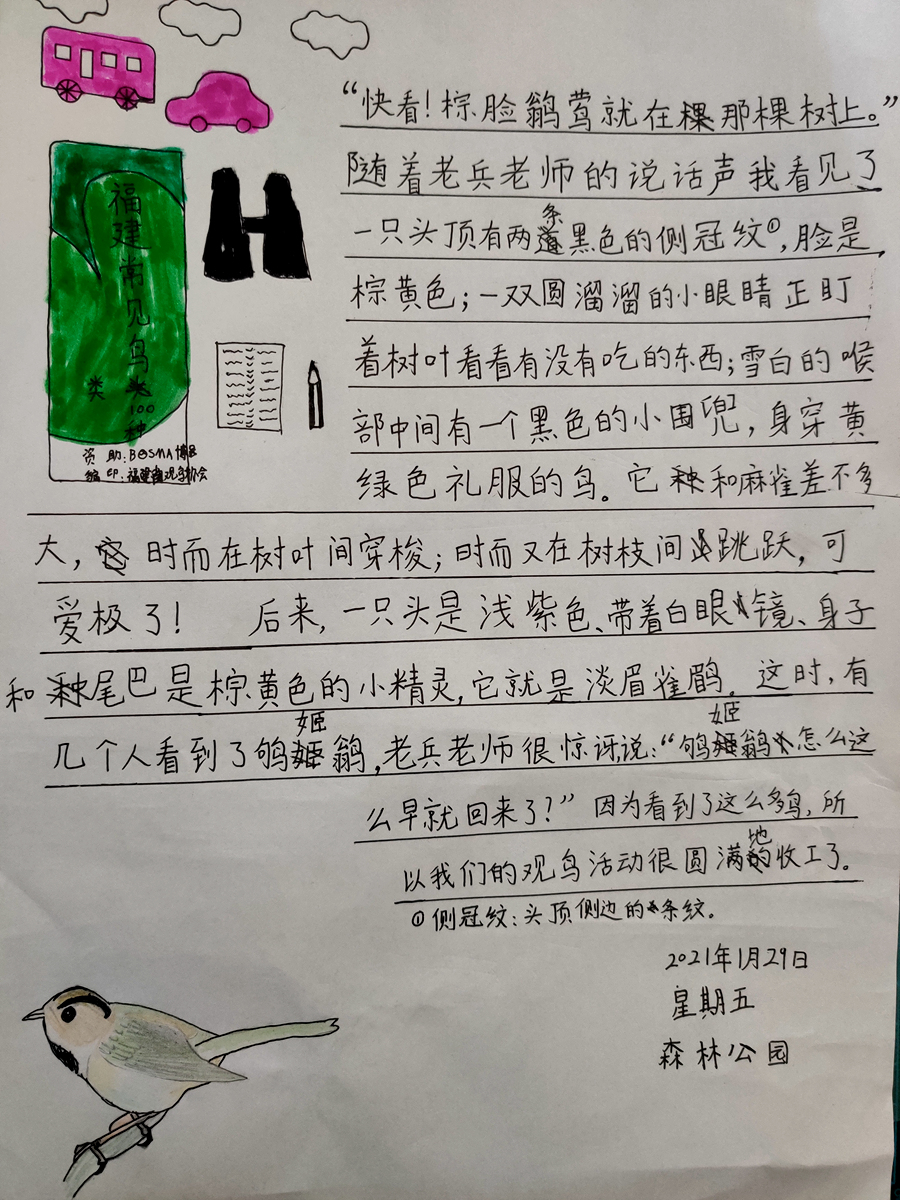 “快看!棕脸鹟莺就在那棵树上。”
随着老兵老师的说话声我看见了
一只头顶有两条黑色的侧冠纹①,脸是
棕黄色;一双圆溜溜的小眼睛正盯
着树叶看看有没有吃的东西;雪白的喉
部中间有一个黑色的小围兜,身穿黄
绿色礼服的鸟。它和麻雀差不多
大,时而在树叶间穿梭;时而又在树枝间跳跃,可
爱极了! 后来,一只头是浅紫色、带着白眼镜、身子
和尾巴是棕黄色的小精灵,它就是淡眉雀鹛。这时,有
几个人看到了鸲姬鹟,老兵老师很惊讶说:“鸲姬鹟怎么这
么早就回来了?”因为看到了这么多鸟,所
以我们的观鸟活动很圆满地收工了。
①侧冠纹:头顶侧边的条纹。
2021年1月29日
星期五
森林公园
福建常见鸟
类
100
种
资 助:BOSMA博冠
编 印:福建省观鸟协会